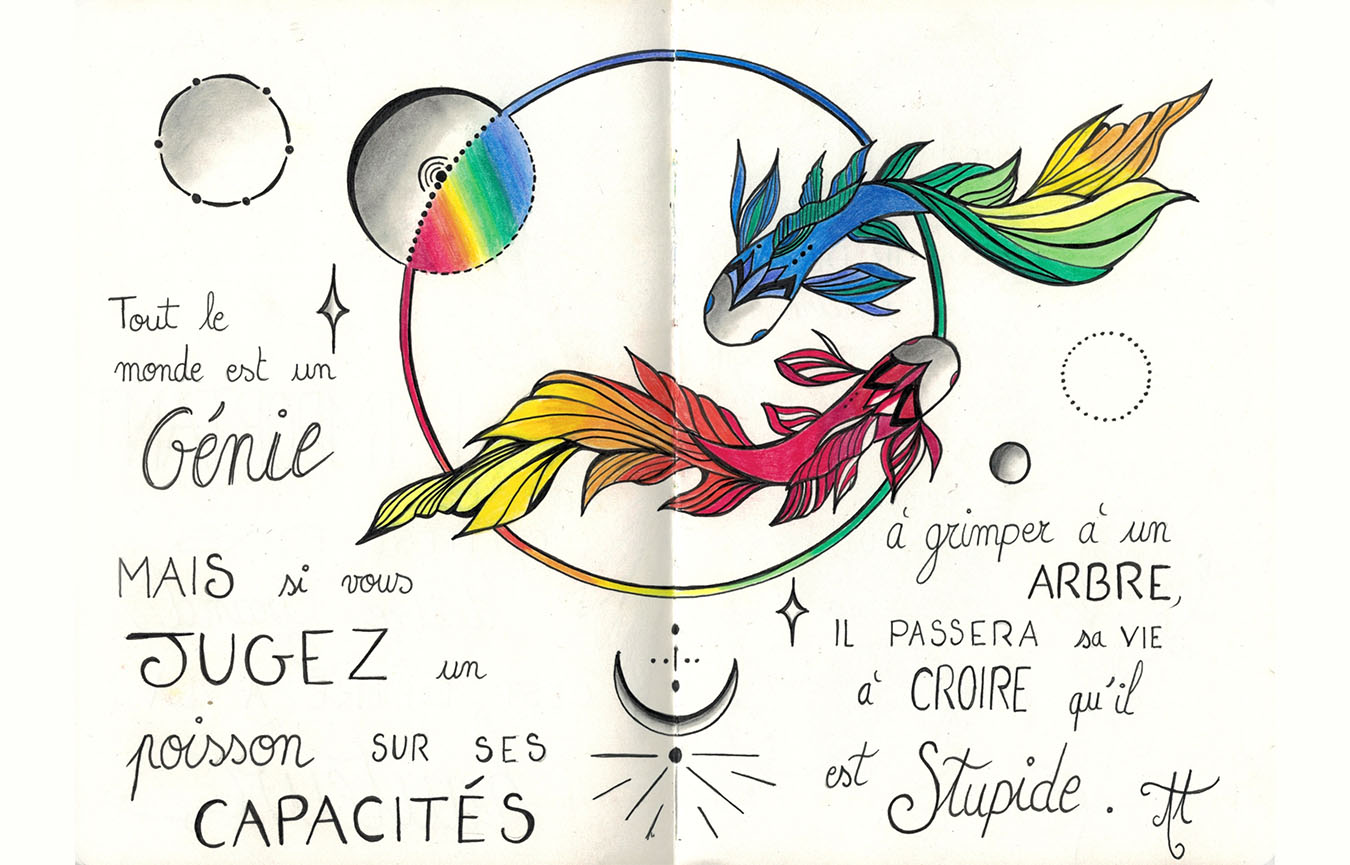 Tout le
monde est un
Génie
MAIS si vous
JUGEZ un
poisson SUR SES
CAPACITÉS
à grimper à un
ARBRE,
IL PASSERA sa VIE
à CROIRE qu'il
est Stupide.